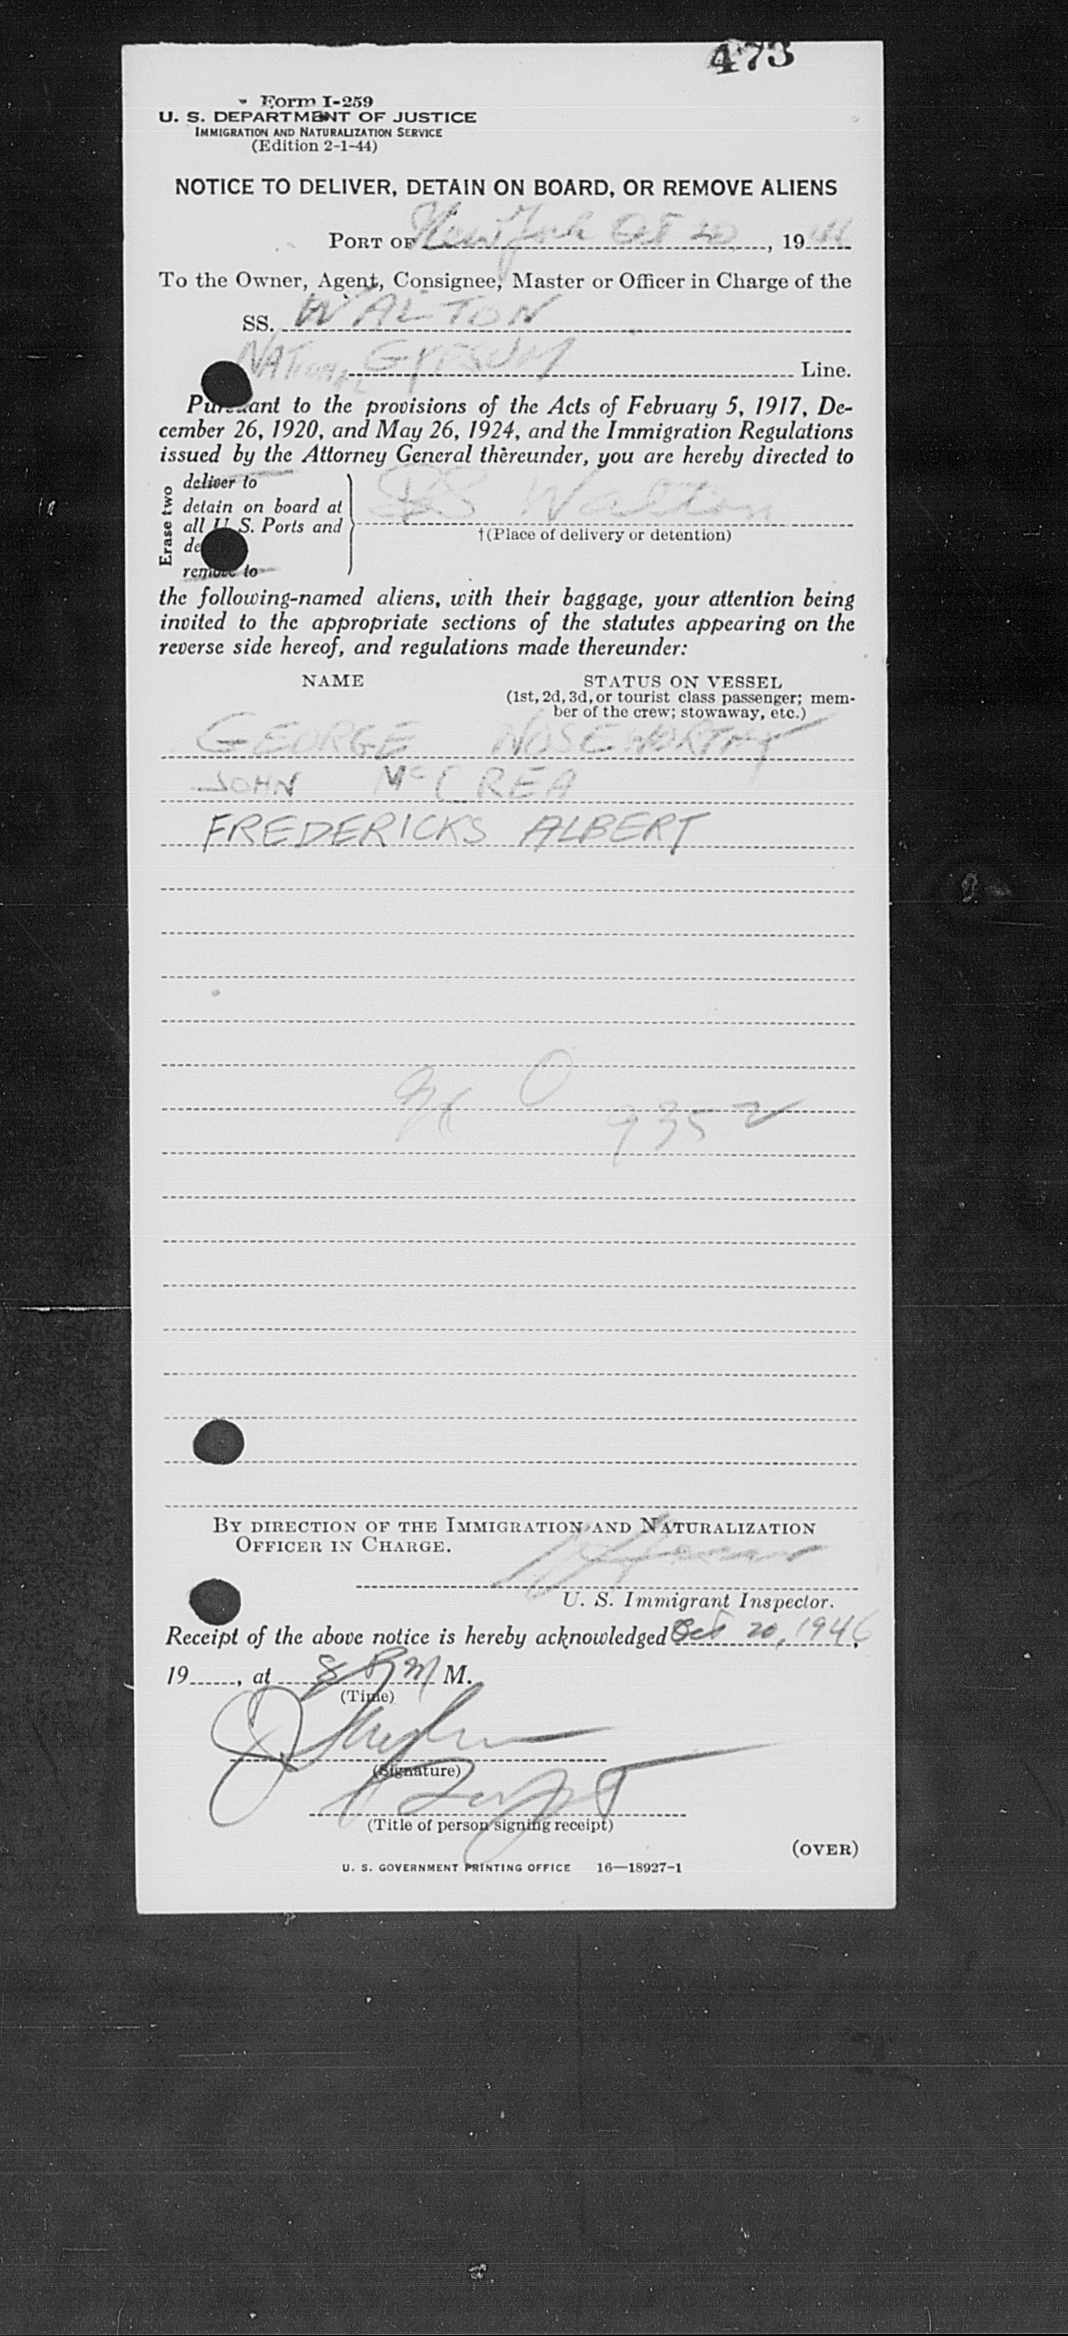 473
Form I-259
U. S. DEPARTMENT OF JUSTICE
IMMIGRATION AND NATURALIZATION SERVICE
(Edition 2-1-44)
NOTICE TO DELIVER, DETAIN ON BOARD, OR REMOVE ALIENS
PORT OF New York Oct 20, 1946
To the Owner, Agent, Consignee, Master or Officer in Charge of the
SS. WALTON
NATIONAL GYPSUM Line.
Pursuant to the provisions of the Acts of February 5, 1917, De-
cember 26, 1920, and May 26, 1924, and the Immigration Regulations
issued by the Attorney General thereunder, you are hereby directed to
Erase two
deliver to
detain on board at
all U. S. Ports and
de
remove to
SS Walton
†(Place of delivery or detention)
the following-named aliens, with their baggage, your attention being
invited to the appropriate sections of the statutes appearing on the
reverse side hereof, and regulations made thereunder:
NAME STATUS ON VESSEL
(1st, 2d, 3d, or tourist class passenger; mem-
ber of the crew; stowaway, etc.)
GEORGE NOSEWORTHY
JOHN McCREA
FREDERICKS ALBERT
9352
BY DIRECTION OF THE IMMIGRATION AND NATURALIZATION
OFFICER IN CHARGE.
U. S. Immigrant Inspector.
Receipt of the above notice is hereby acknowledged Oct 20, 1946,
19......, at 8 PM M.
(Time)
(Signature)
(Title of person signing receipt)
(OVER)
U. S. GOVERNMENT PRINTING OFFICE 16—18927-1